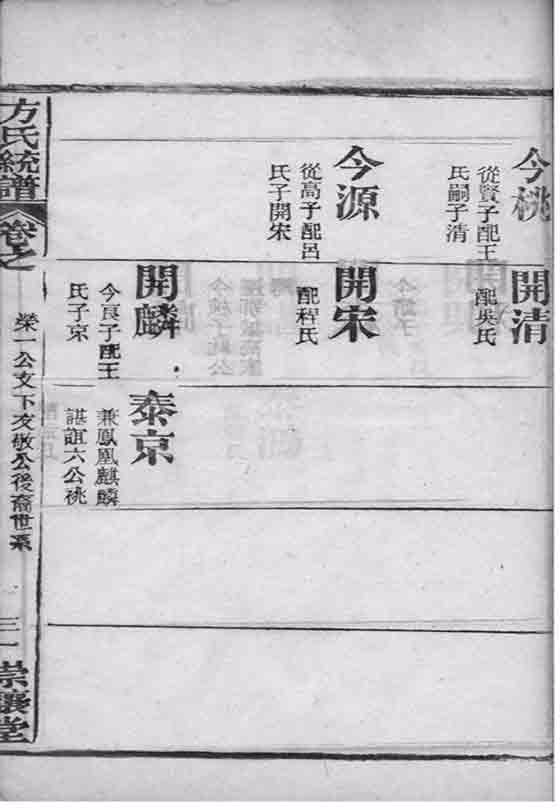 今桃
從賢子配王
氏嗣子清
今源
從高子配呂
氏子開宋
開清
配吳氏
開宋
配程氏
開麟
今良子配王
氏子京
泰京
兼鳳凰麒麟
諶誼六公祧
方氏統譜
卷之
榮一公文下友敬公後裔世系
三一
崇讓堂